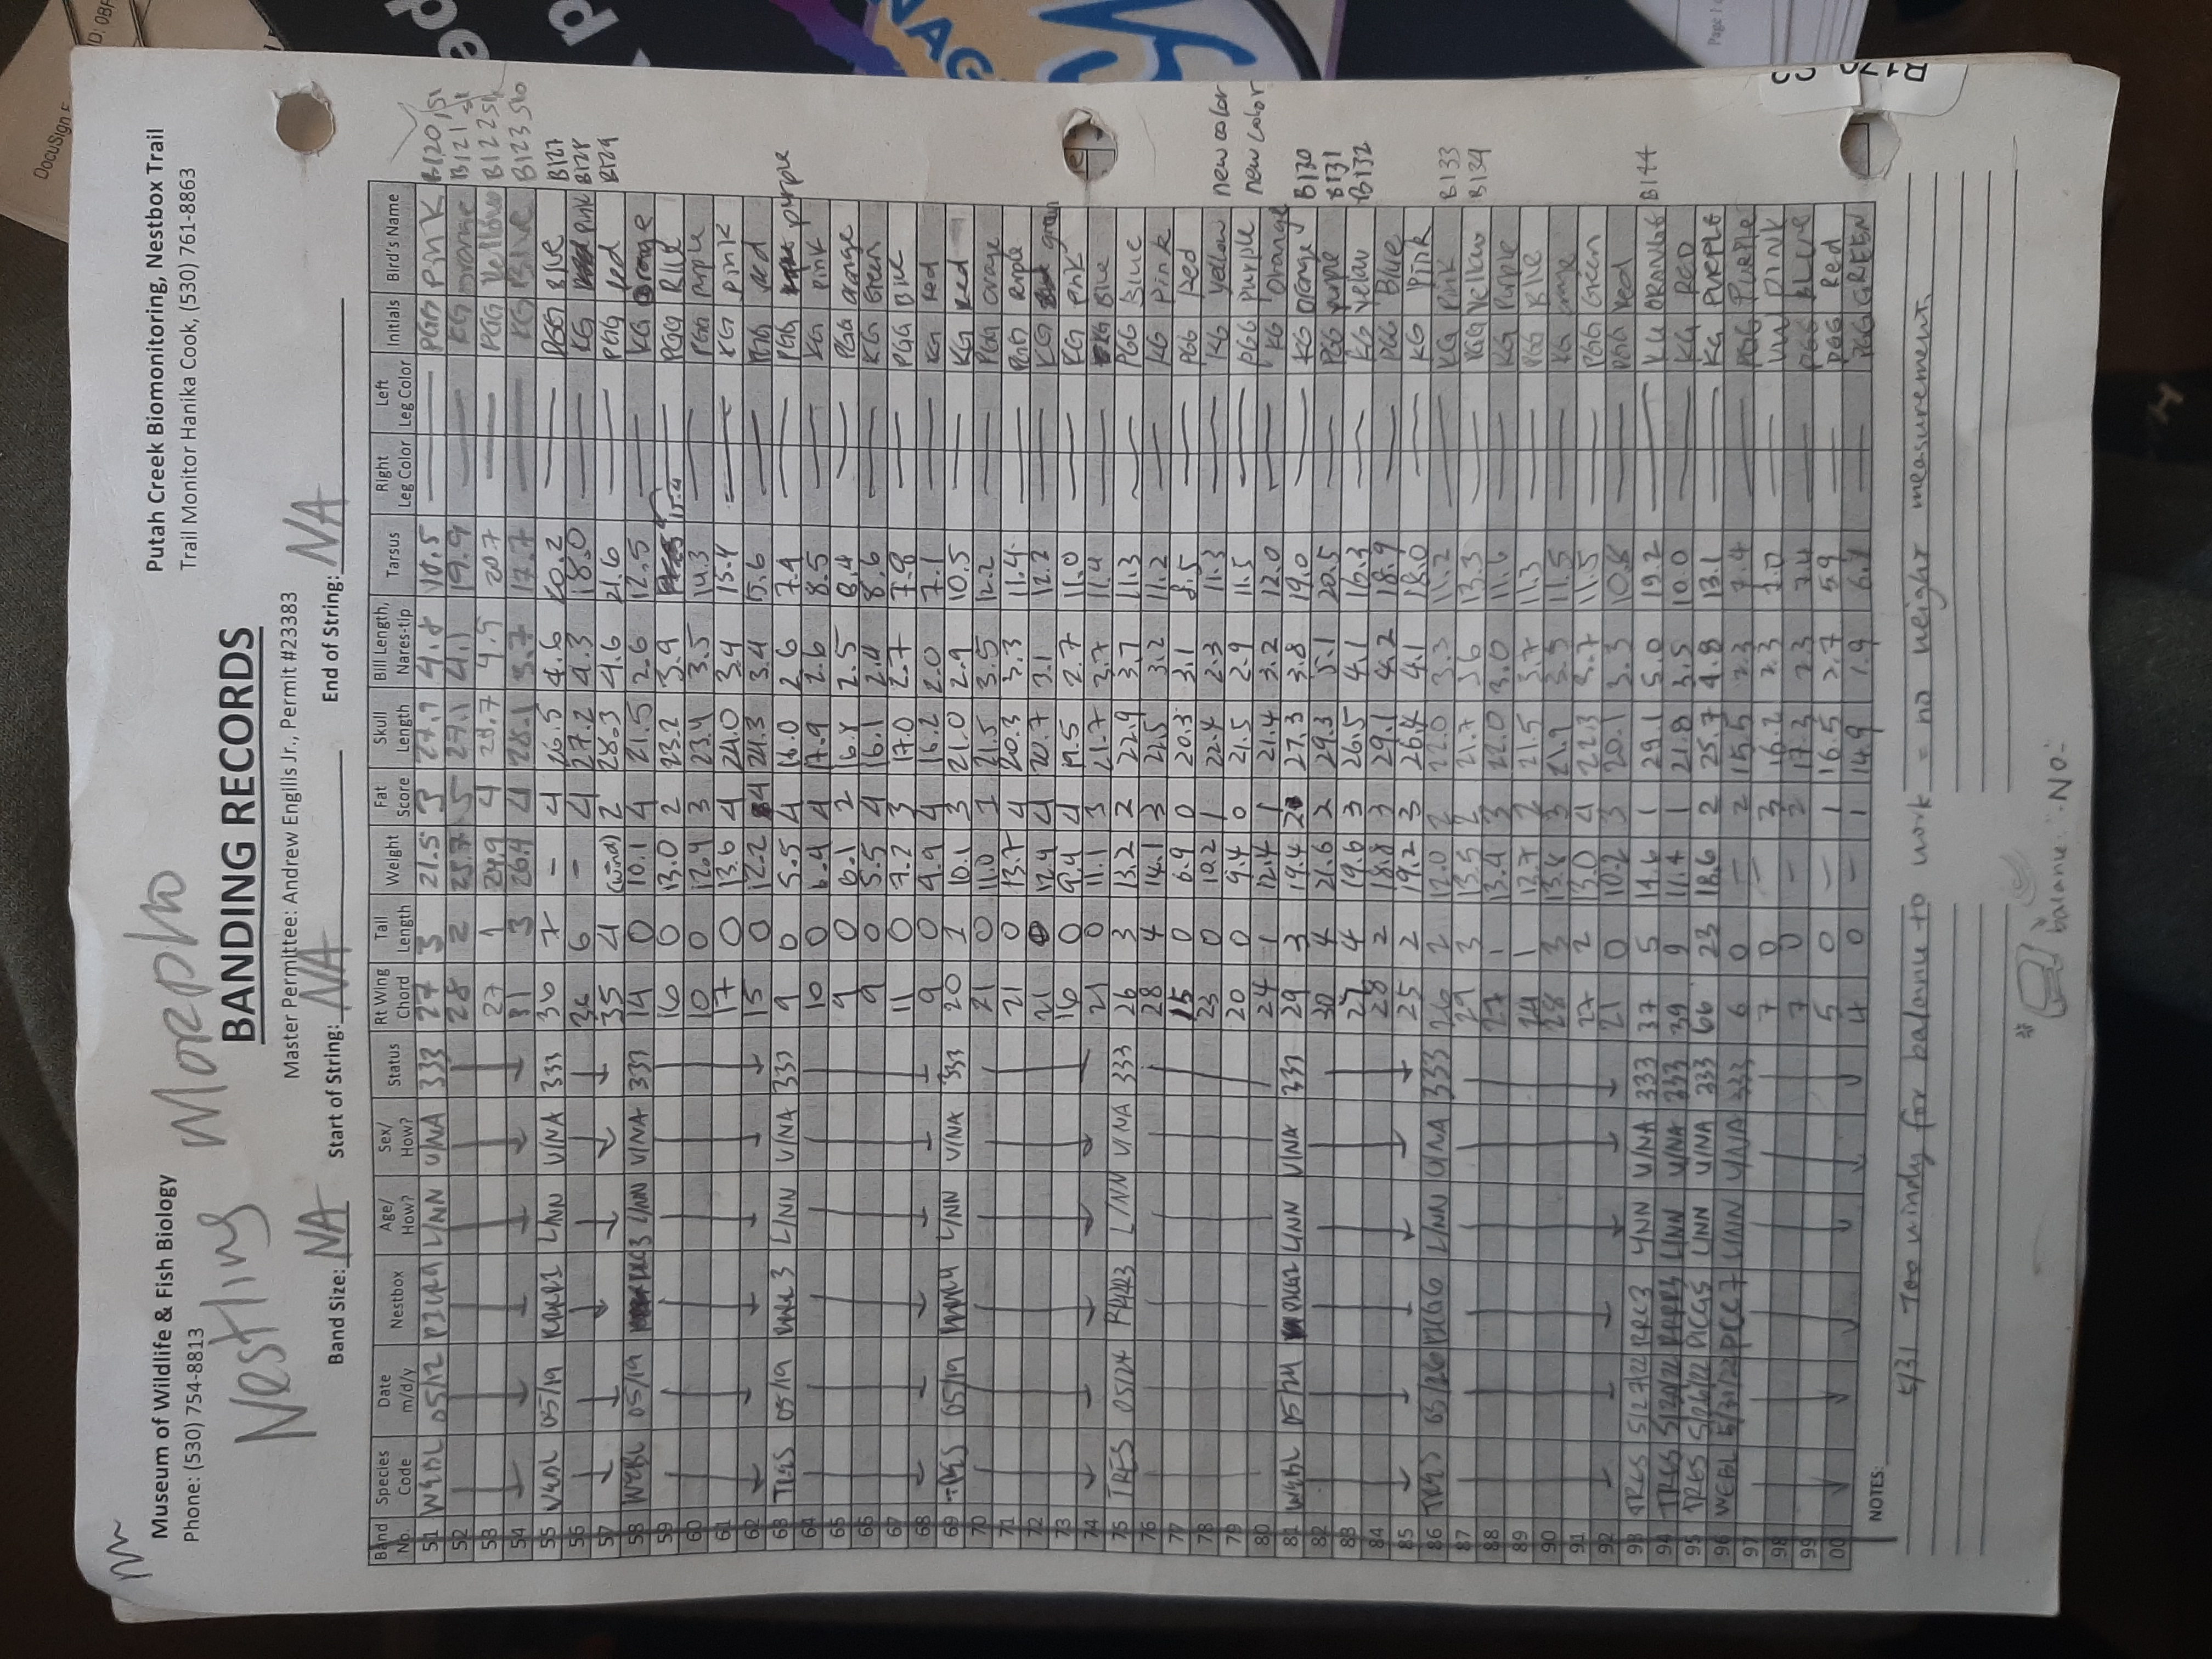 DocuSign
ID: 0BF
Museum of Wildlife & Fish Biology
Phone: (530) 754-8813
Putah Creek Biomonitoring, Nestbox Trail
Trail Monitor Hanika Cook, (530) 761-8863
Nestling Morpho
BANDING RECORDS
Master Permittee: Andrew Engilis Jr., Permit #23383
Band Size: NA Start of String: NA End of String: NA
Band No. Species Code Date m/d/y Nestbox Age/ How? Sex/ How? Status Rt Wing Chord Tail Length Weight Fat Score Skull Length Bill Length, Nares-tip Tarsus Right Leg Color Left Leg Color Initials Bird's Name
51 WEBL 05/12 L/NN U/NA 333 27 3 21.5 3 4.8 PGG Pink B120
52 28 2 5 27.1 4.1 19.9 KG orange B121
53 27 1 24.9 4 20.7 PGG Yellow B122
54 31 3 26.4 4 28.1 17.7 KG Blue B123
55 WEBL 05/19 L/NN U/NA 333 36 7 - 4 26.5 4.6 20.2 PGG Blue B127
56 6 - 4 27.2 4.3 18.0 KG pink B128
57 35 4 (wind) 2 28.3 4.6 21.6 PGG Red B129
58 WEBL 05/19 L/NN U/NA 333 14 0 10.1 4 21.5 2.6 12.5 KG orange
59 16 0 13.0 2 23.2 3.9 15.4 PGG Blue
60 10 0 12.4 3 23.4 3.5 14.3 PGG purple
61 17 0 13.6 4 24.0 3.4 15.4 KG pink
62 15 0 12.2 4 24.3 3.4 15.6 PGG red
63 TRES 05/19 L/NN U/NA 333 9 0 5.5 4 16.0 2.6 7.4 PGG purple
64 10 0 6.4 4 17.9 2.6 8.5 KG pink
65 9 0 6.1 2 16.8 2.5 8.4 PGG orange
66 9 0 5.5 4 16.1 2.4 8.6 KG Green
67 11 0 7.2 3 17.0 2.7 7.8 PGG Blue
68 9 0 4.9 4 16.2 2.0 7.1 KG Red
69 TRES 05/19 L/NN U/NA 333 20 1 10.1 3 21.0 2.9 10.5 KG Red
70 21 0 11.0 1 21.5 3.5 12.2 PGG orange
71 21 0 13.7 4 20.3 3.3 11.4 PGG Purple
72 21 0 12.4 4 20.7 3.1 12.2 KG green
73 16 0 9.4 4 19.5 2.7 11.0 KG pink
74 21 0 11.1 3 21.7 3.7 11.4 KG Blue
75 TRES 05/24 RRRR3 L/NN U/NA 333 26 3 13.2 2 22.9 3.7 11.3 PGG Blue
76 28 4 14.1 3 22.5 3.2 11.2 KG pink
77 15 0 6.9 0 20.3 3.1 8.5 PGG Red
78 23 0 10.2 1 22.4 2.3 11.3 KG yellow new color
79 20 0 9.4 0 21.5 2.9 11.5 PGG purple new color
80 24 1 12.4 1 21.4 3.2 12.0 KG Orange
81 WEBL 05/24 L/NN U/NA 333 29 3 19.4 2 27.3 3.8 19.0 KG orange B130
82 30 4 21.6 2 29.3 5.1 20.5 PGG purple B131
83 27 4 19.6 3 26.5 4.1 16.3 KG yelow B132
84 28 2 18.8 3 29.1 4.2 18.9 PGG Blue
85 25 2 19.2 3 26.4 4.1 18.0 KG Pink
86 TRES 05/26 L/NN U/NA 333 26 2 12.0 2 22.0 3.3 11.2 KG Pink B133
87 29 3 13.5 2 21.7 3.6 13.3 PGG Yellow B134
88 27 1 13.4 3 22.0 3.0 11.6 KG Purple
89 24 1 2 21.5 3.7 11.3 PGG Blue
90 28 3 13.8 3 21.9 11.5 KG orange
91 27 2 13.0 4 22.3 3.7 11.5 PGG Green
92 21 0 10.2 3 20.1 3.3 10.8 PGG Red
93 TRES 5/27/22 RRC3 L/NN U/NA 333 37 5 14.6 1 29.1 5.0 19.2 KG ORANGE B144
94 TRES RRRR3 L/NN U/NA 333 39 9 11.4 1 21.8 3.5 10.0 KG RED
95 TRES 5/26/22 L/NN U/NA 333 66 23 18.6 2 25.7 4.8 13.1 KG PURPLE
96 WEBL 5/31/22 PCC7 L/NN U/NA 333 6 0 - 2 15.5 2.3 7.4 PGG PURPLE
97 7 0 - 3 16.2 2.3 PINK
98 7 0 - 2 17.3 2.3 7.4 PGG BLUE
99 5 0 - 1 16.5 2.7 5.9 PGG Red
00 4 0 - 1 14.9 1.9 PGG GREEN
NOTES:
5/31 Too windy for balance to work = no weight measurement.
balance "NO"
Page 1